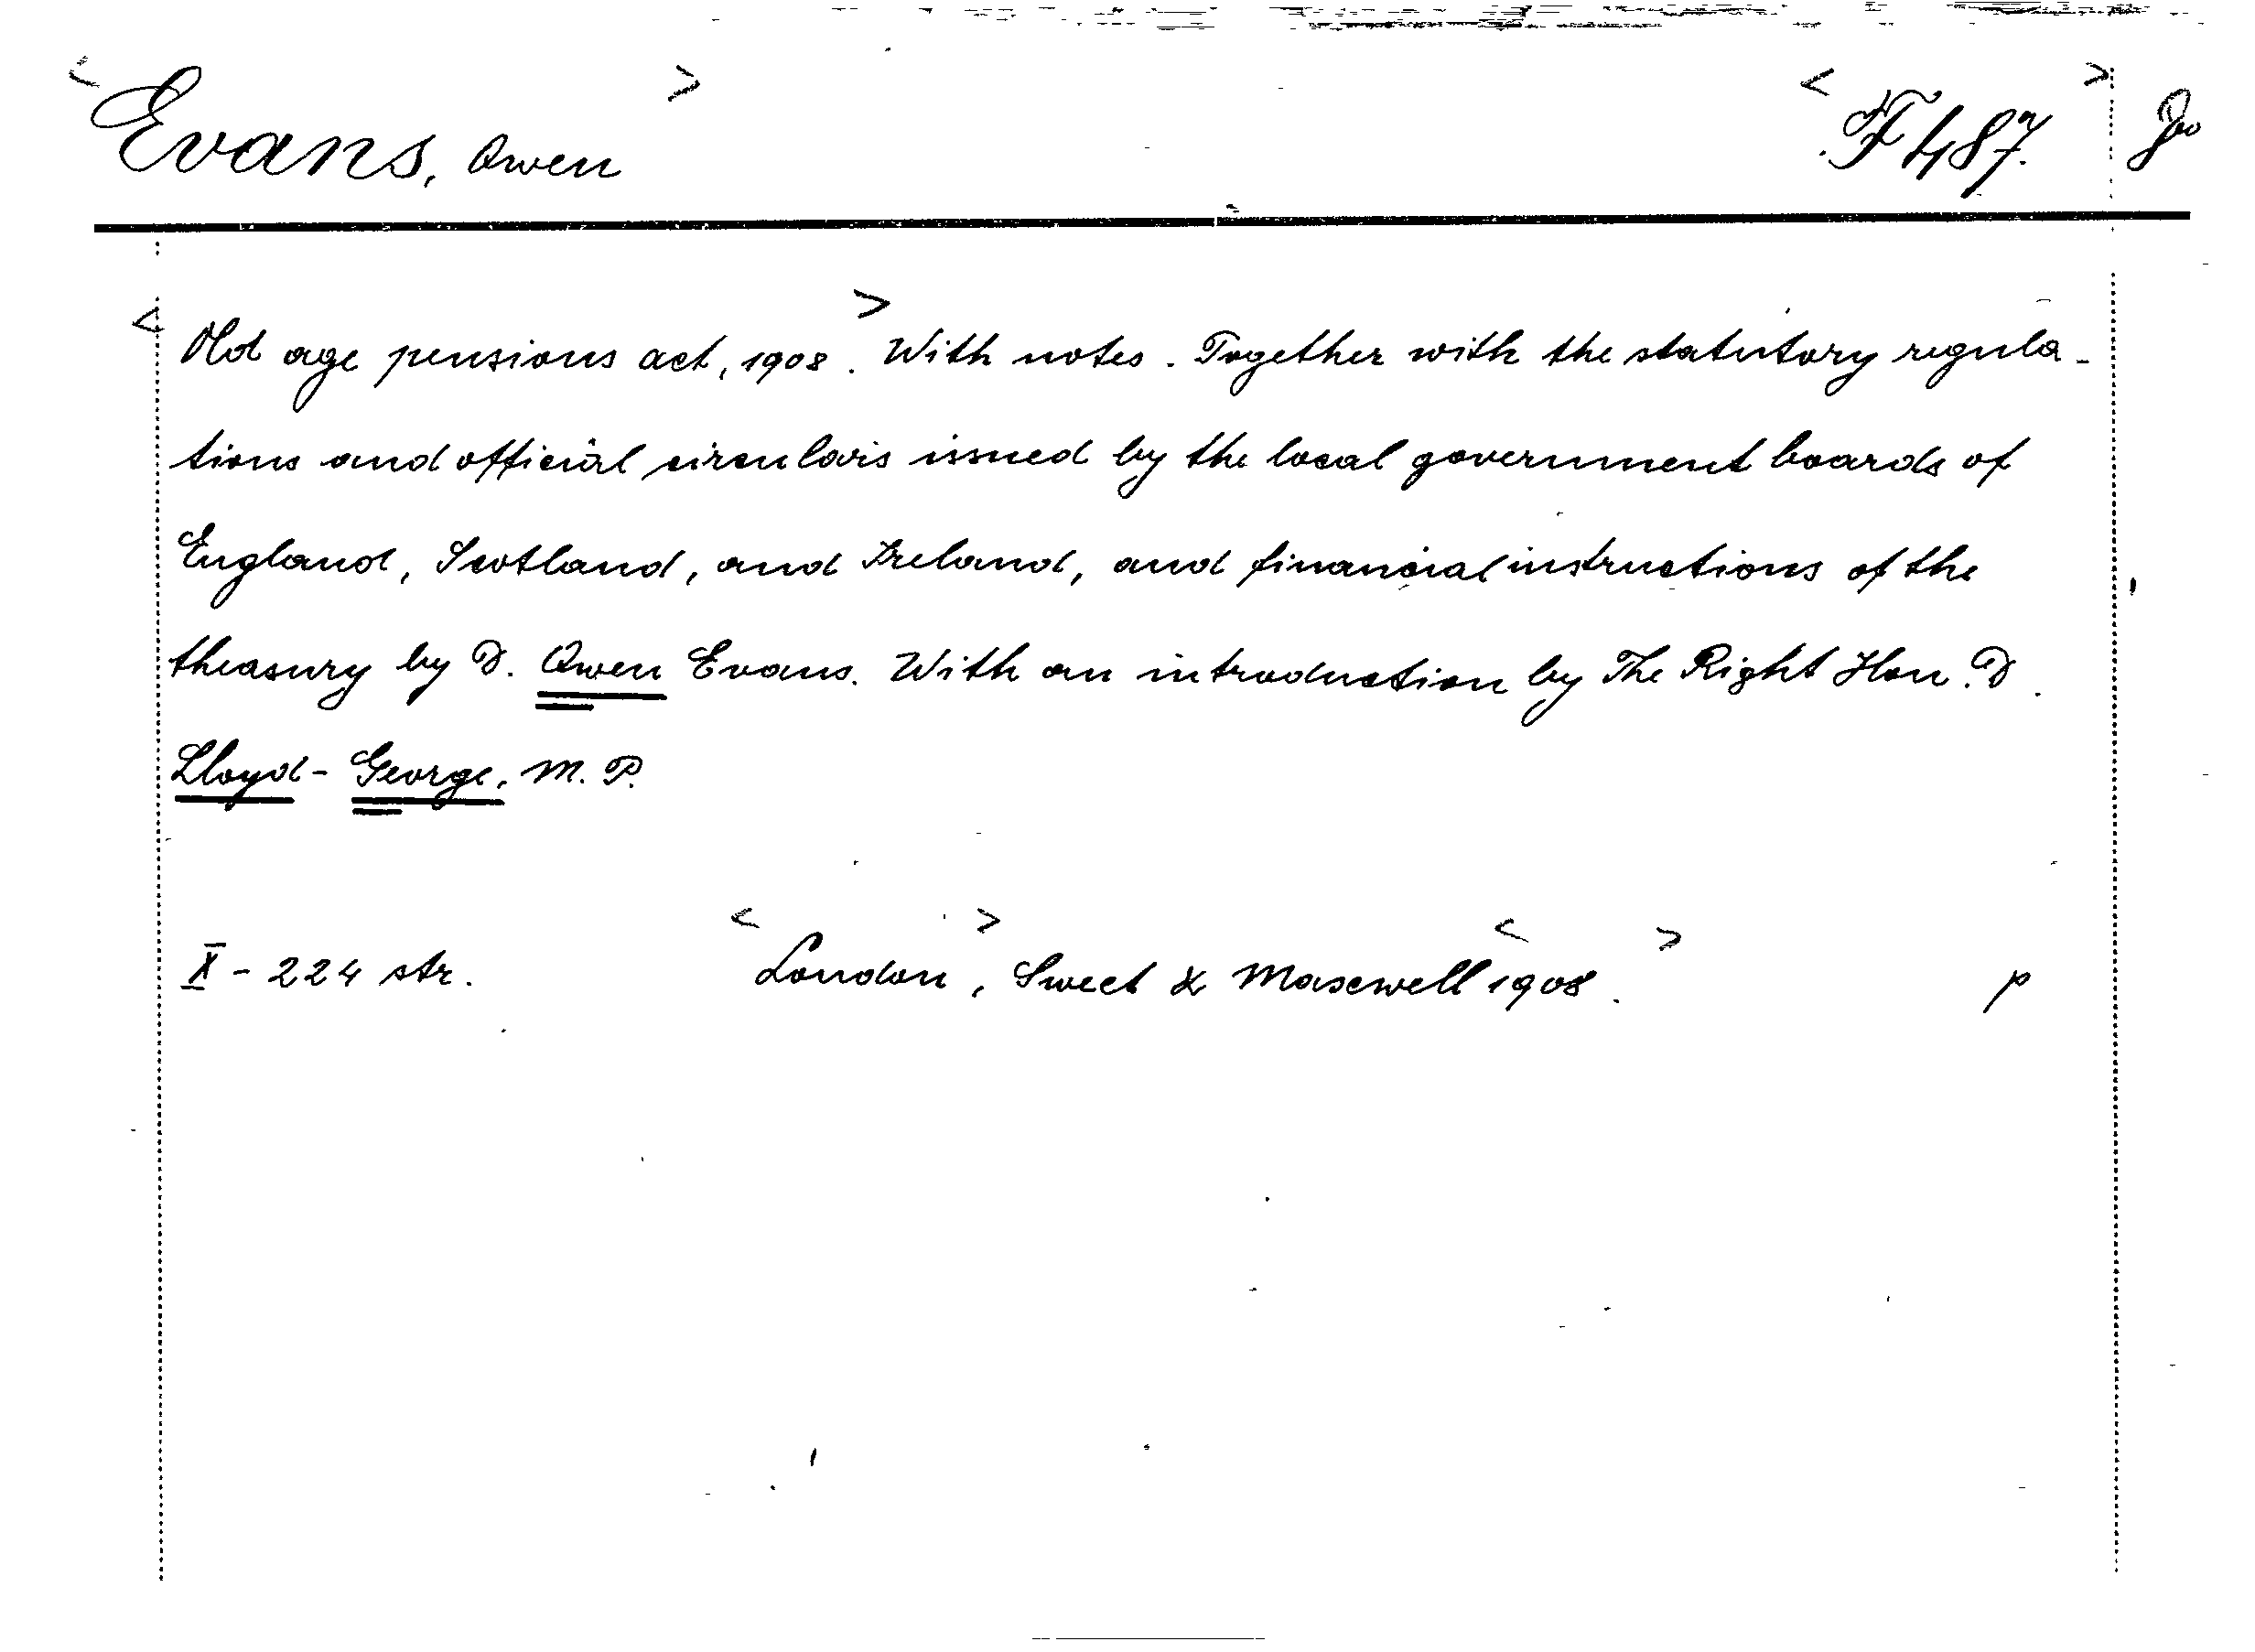 < Evans, Owen > < F 487. >
< Old age pensions act, 1908. > With notes. Together with the statutory regula-
tions and official circulars issued by the local government boards of
England, Scotland, and Ireland, and financial instructions of the
theasury by D. Owen Evans. With an introduction by The Right Hon. D.
Lloyd-George, M. P.
X - 224 str. < London >, Sweet & Maxwell < 1908. > p